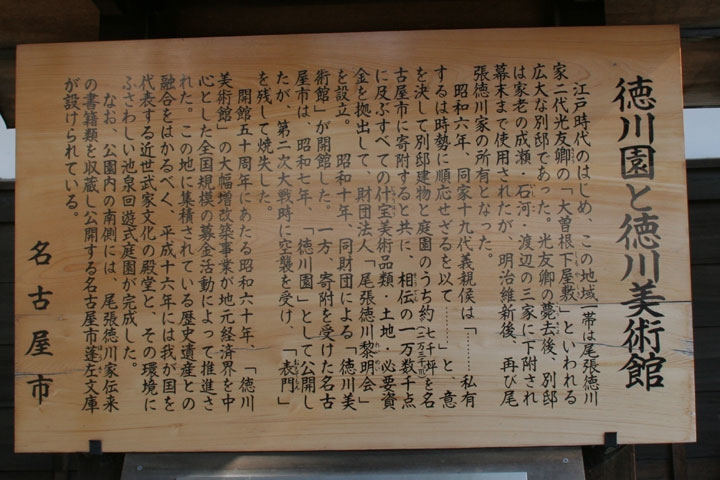 徳川園と徳川美術館
江戸時代のはじめ、この地域一帯は尾張徳川
家二代光友卿の「大曽根下屋敷」といわれる
広大な別邸であった。光友卿の薨去後、別邸
は家老の成瀬・石河・渡辺の三家に下附され
幕末まで使用されたが、明治維新後、再び尾
張徳川家の所有となった。
昭和六年、同家十九代義親侯は「……私有
するは時勢に順応せざるを以て………」と、意
を決して別邸建物と庭園のうち約七千坪を名
古屋市に寄附すると共に、相伝の一万数千点
に及ぶすべての什宝美術品類・土地・必要資
金を拠出して、財団法人「尾張徳川黎明会」
を設立。昭和十年、同財団による「徳川美
術館」が開館した。一方、寄附を受けた名古
屋市は、昭和七年、「徳川園」として公開し
たが、第二次大戦時に空襲を受け、「表門」
を残して焼失した。
開館五十周年にあたる昭和六十年、「徳川
美術館」の大幅増改築事業が地元経済界を中
心とした全国規模の募金活動によって推進さ
れた。この地に集積されている歴史遺産との
融合をはかるべく、平成十六年には我が国を
代表する近世武家文化の殿堂と、その環境に
ふさわしい池泉回遊式庭園が完成した。
なお、公園内の南側には、尾張徳川家伝来
の書籍類を収蔵し公開する名古屋市蓬左文庫
が設けられている。
名古屋市